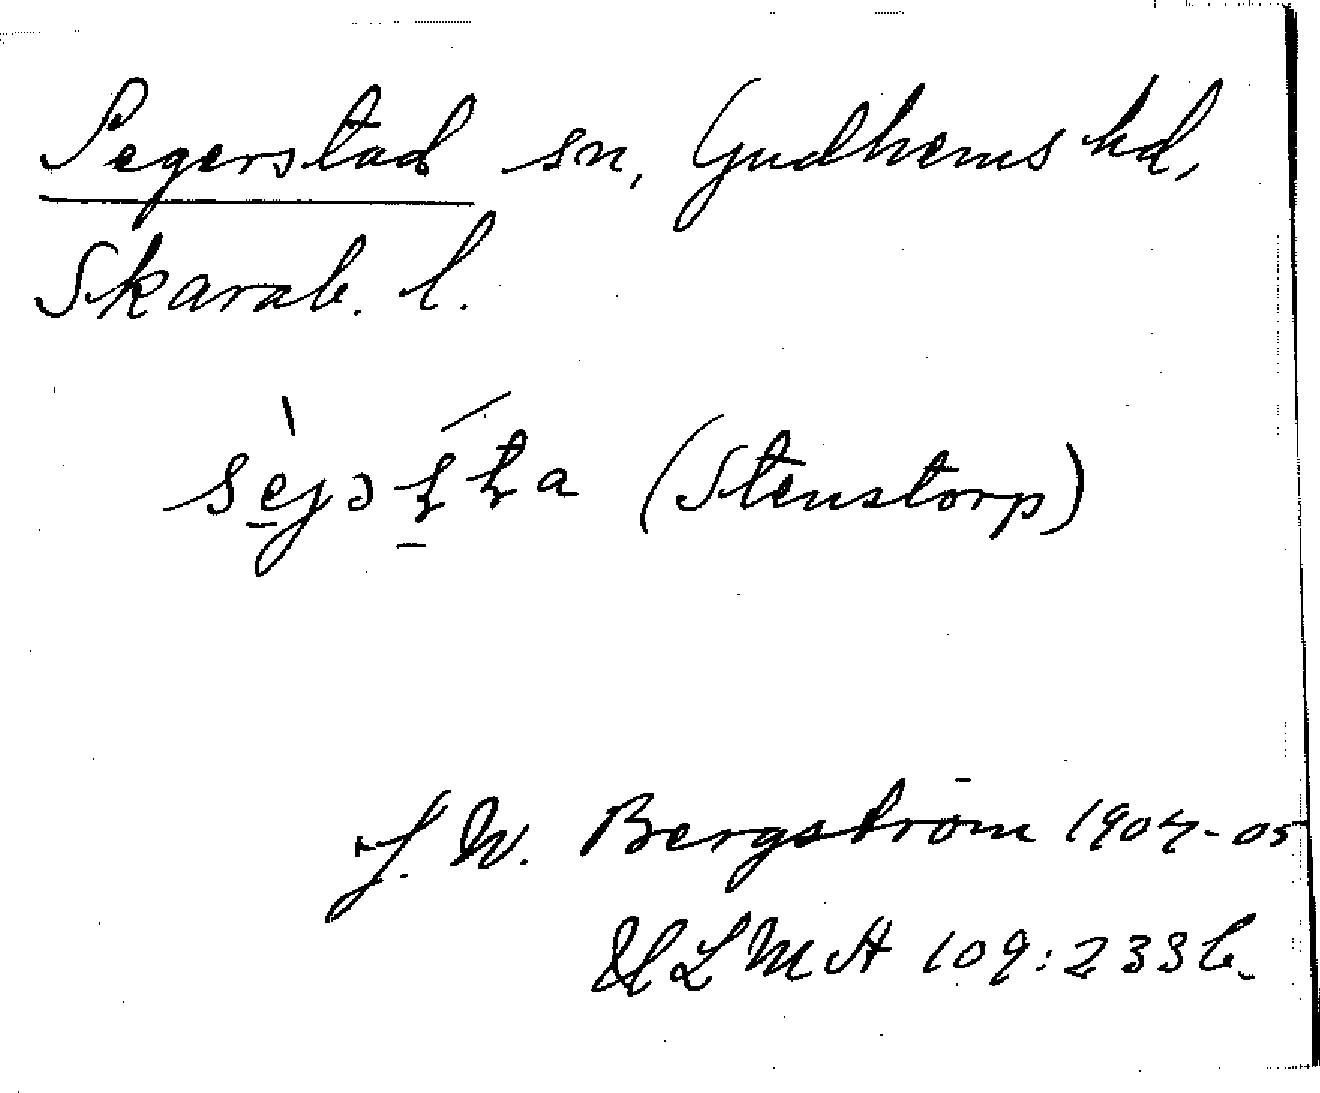 Segerstad sn, Gudhems hd,
Skarab. l.
(Stenstorp)
J. W. Bergström 1904-05
ULMA 109:233b.